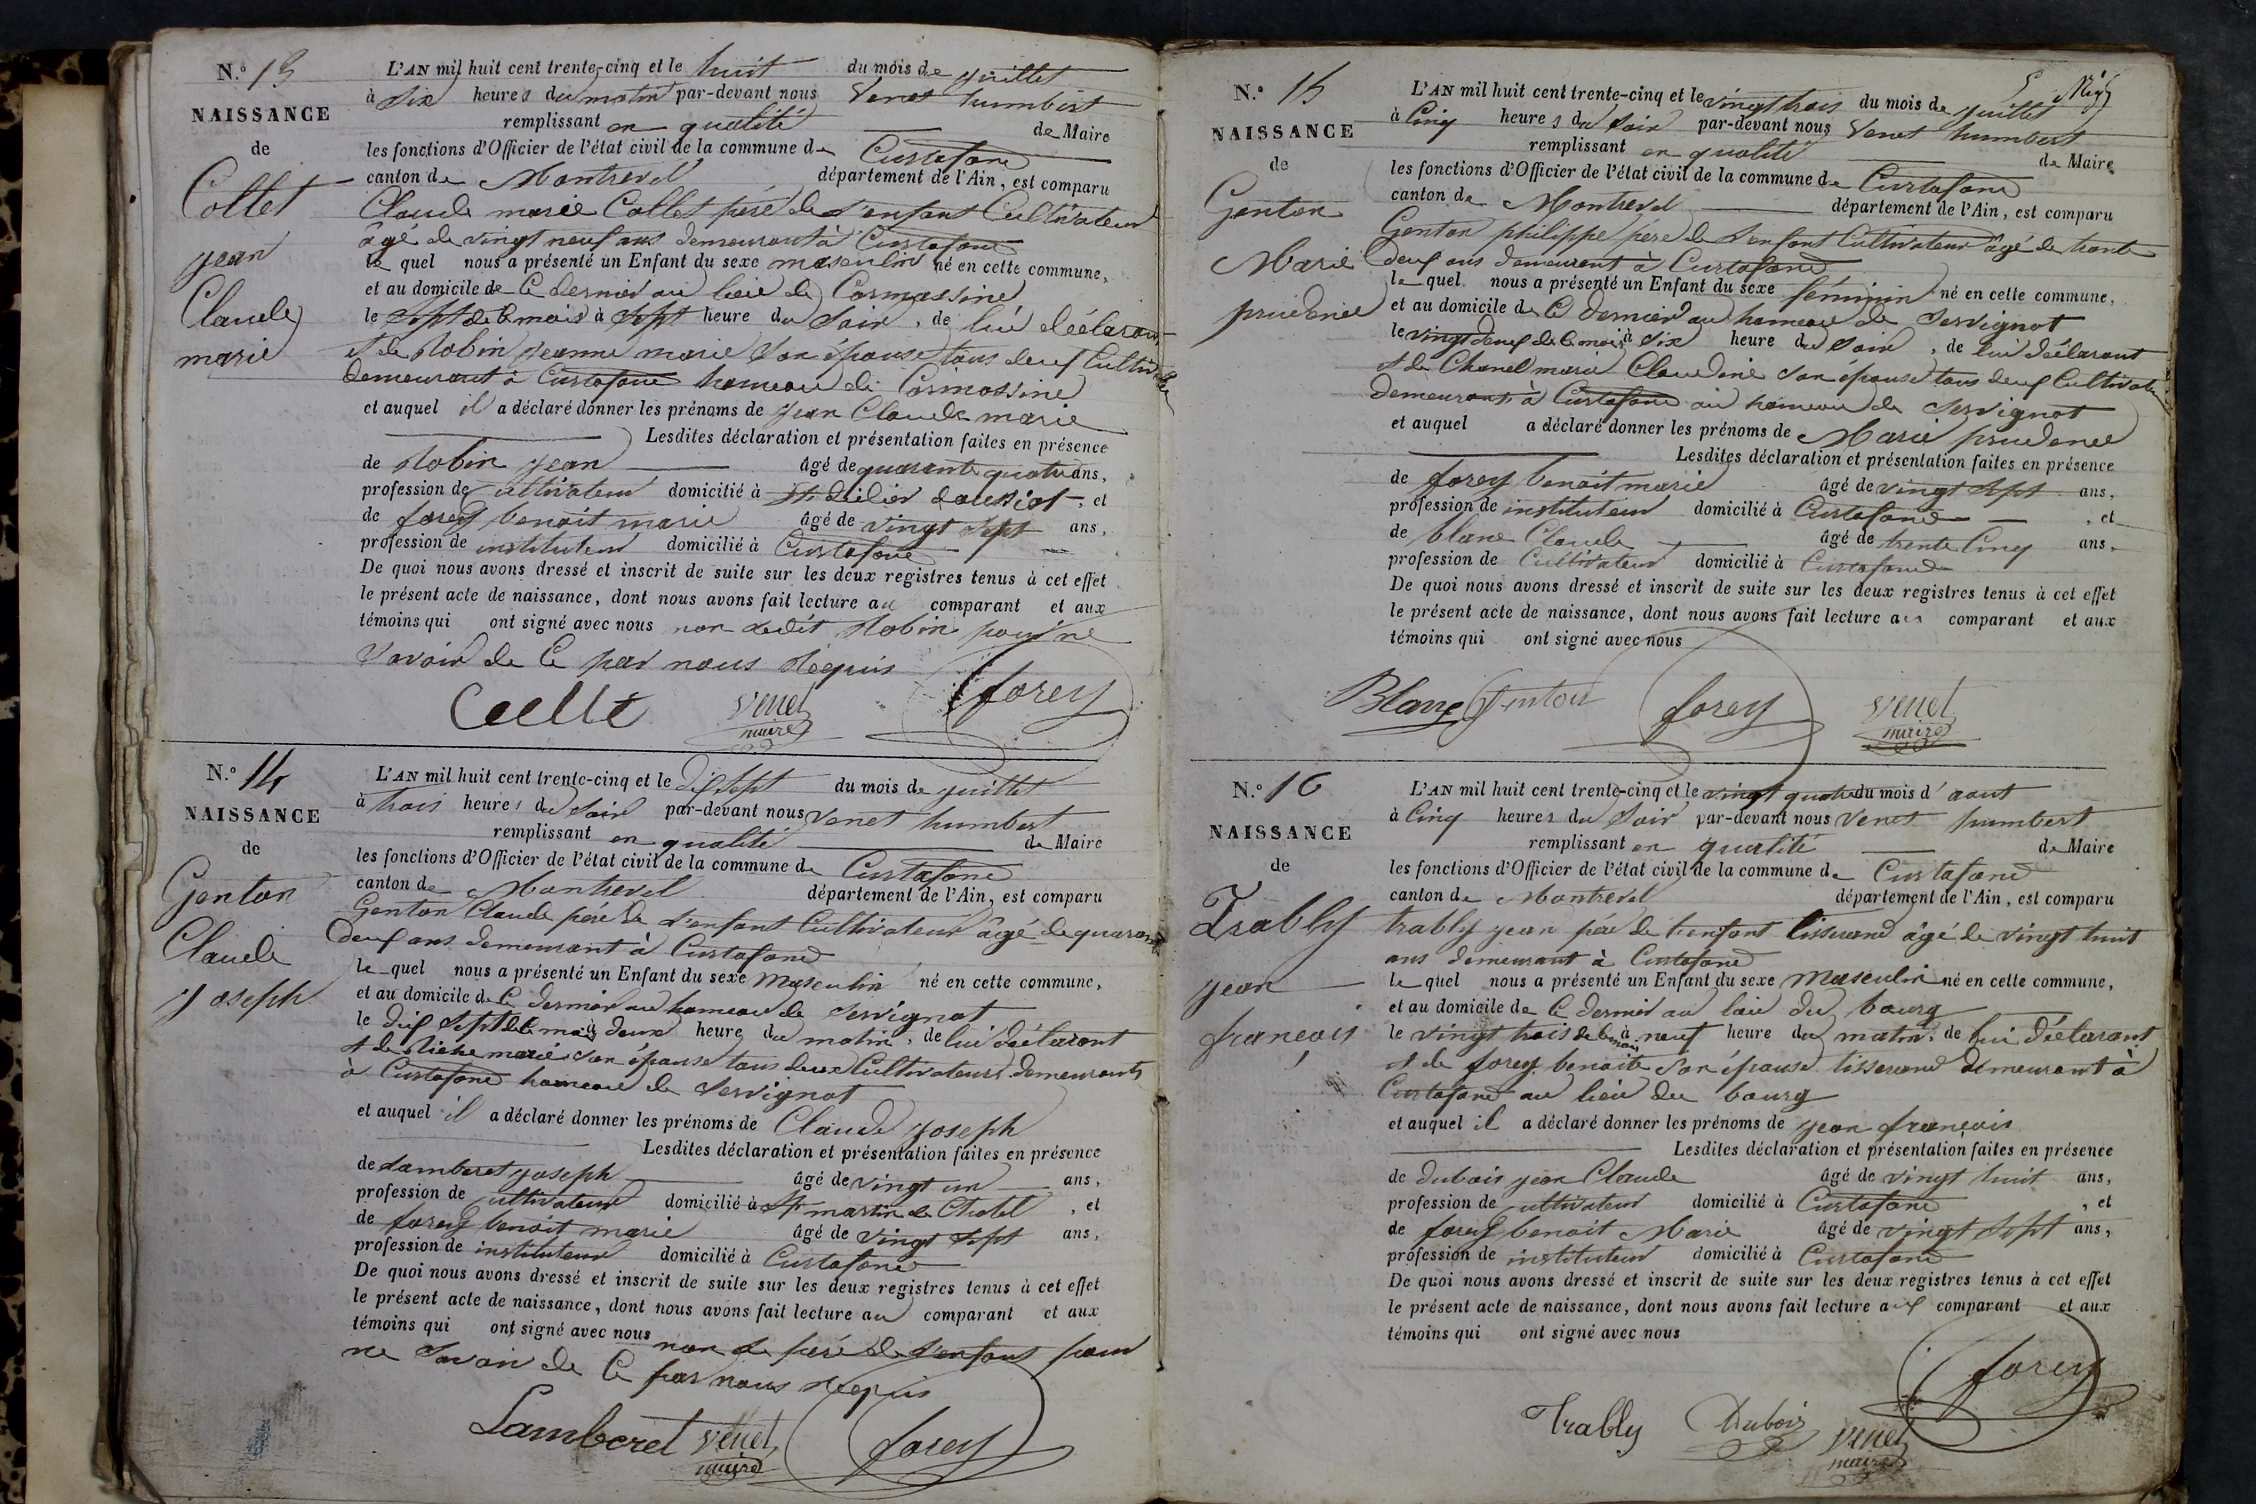 N.° 13
NAISSANCE
de
Collet
jean
Claude
marie
L'AN mil huit cent trente-cinq et le huit du mois de juillet
à six heures du matin par-devant nous Venet humbert
remplissant en qualité de Maire
les fonctions d'Officier de l'état civil de la commune de Curtafond
canton de Montrevel département de l'Ain, est comparu
Claude marie Collet père de l'enfant Cultivateur
âgé de vingt neuf ans demeurant à Curtafond
le quel nous a présenté un Enfant du sexe masculin né en cette commune,
et au domicile de Ce dernier au lieu de Cormassine
le sept de Ce mois à sept heure du soir, de lui déclarant
et de Robin jeanne marie son épouse tous deux Cultivateurs
demeurant à Curtafond hameau de Cormossine
et auquel il a déclaré donner les prénoms de jean Claude marie
Lesdites déclaration et présentation faites en présence
de Robin jean âgé de quarante quatre ans,
profession de cultivateur domicilié à St didier daussiat, et
de forey benoit marie âgé de vingt sept ans,
profession de instituteur domicilié à Curtafond
De quoi nous avons dressé et inscrit de suite sur les deux registres tenus à cet effet
le présent acte de naissance, dont nous avons fait lecture au comparant et aux
témoins qui ont signé avec nous non dedit Robin pour ne
savoir de Ce par nous Réquis
Collet venet maire forey
N.° 14
NAISSANCE
de
Genton
Claude
joseph
L'AN mil huit cent trente-cinq et le dix sept du mois de juillet
à trois heures du soir par-devant nous venet humbert
remplissant en qualité de Maire
les fonctions d'Officier de l'état civil de la commune de Curtafond
canton de Montrevel département de l'Ain, est comparu
Genton Claude père de l'enfant Cultivateur âgé de quarante
deux ans demeurant à Curtafond
le quel nous a présenté un Enfant du sexe Masculin né en cette commune,
et au domicile de Ce dernier au hameau de Servignat
le dix sept de Ce mois à deux heure du matin, de lui déclarant
et de marie son épouse tous deux Cultivateurs demeurants
à Curtafond hameau de Servignat
et auquel il a déclaré donner les prénoms de Claude joseph
Lesdites déclaration et présentation faites en présence
de Lamberet joseph âgé de vingt un ans,
profession de cultivateur domicilié à St martin le Chatel, et
de forey benoit marie âgé de vingt sept ans,
profession de instituteur domicilié à Curtafond
De quoi nous avons dressé et inscrit de suite sur les deux registres tenus à cet effet
le présent acte de naissance, dont nous avons fait lecture au comparant et aux
témoins qui ont signé avec nous non le père de l'enfant pour
ne savoir de Ce par nous Requis
Lamberet venet maire forey
N.° 15
NAISSANCE
de
Genton
Marie
prudence
L'AN mil huit cent trente-cinq et le vingt trois du mois de juillet
à Cinq heures du soir par-devant nous Venet humbert
remplissant en qualité de Maire
les fonctions d'Officier de l'état civil de la commune de Curtafond
canton de Montrevel département de l'Ain, est comparu
Genton philippe père de l'enfant Cultivateur âgé de trente
deux ans demeurant à Curtafond
le quel nous a présenté un Enfant du sexe féminin né en cette commune,
et au domicile de Ce dernier au hameau de Servignat
le vingt deux de Ce mois à six heure du soir, de lui déclarant
et de Chanel marie Claudine son épouse tous deux Cultivateurs
demeurants à Curtafond au hameau de Servignat
et auquel a déclaré donner les prénoms de Marie prudence
Lesdites déclaration et présentation faites en présence
de forey benoit marie âgé de vingt sept ans,
profession de instituteur domicilié à Curtafond, et
de blanc Claude âgé de trente Cinq ans,
profession de Cultivateur domicilié à Curtafond
De quoi nous avons dressé et inscrit de suite sur les deux registres tenus à cet effet
le présent acte de naissance, dont nous avons fait lecture aux comparant et aux
témoins qui ont signé avec nous
Blanc Genton forey venet maire
N.° 16
NAISSANCE
de
Trably
jean
françois
L'AN mil huit cent trente-cinq et le vingt quatre du mois d'aout
à Cinq heures du soir par-devant nous Venet humbert
remplissant en qualité de Maire
les fonctions d'Officier de l'état civil de la commune de Curtafond
canton de Montrevel département de l'Ain, est comparu
trably jean père de l'enfant tisserand âgé de vingt huit
ans demeurant à Curtafond
le quel nous a présenté un Enfant du sexe Masculin né en cette commune,
et au domicile de Ce dernier au lieu du bourg
le vingt trois de Ce mois à neuf heure du matin, de lui déclarant
et de forey benoite son épouse tisserand demeurant à
Curtafond au lieu du bourg
et auquel il a déclaré donner les prénoms de jean françois
Lesdites déclaration et présentation faites en présence
de dubois jean Claude âgé de vingt huit ans,
profession de cultivateur domicilié à Curtafond, et
de forey benoit Marie âgé de vingt sept ans,
profession de instituteur domicilié à Curtafond
De quoi nous avons dressé et inscrit de suite sur les deux registres tenus à cet effet
le présent acte de naissance, dont nous avons fait lecture aux comparant et aux
témoins qui ont signé avec nous
forey
Trably Dubois venet maire